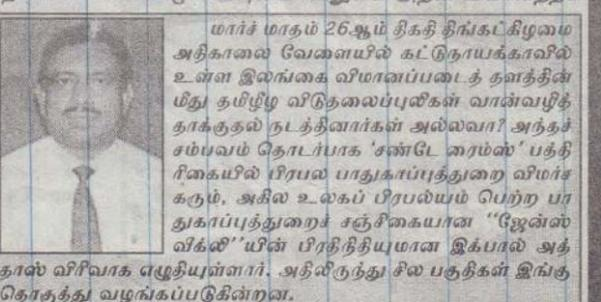 மார்ச் மாதம் 26ஆம் திகதி திங்கட்கிழமை
அதிகாலை வேளையில் கட்டுநாயக்காவில்
உள்ள இலங்கை விமானப்படைத் தளத்தின்
மீது தமிழீழ விடுதலைப்புலிகள் வான்வழித்
தாக்குதல் நடத்தினார்கள் அல்லவா? அந்தச்
சம்பவம் தொடர்பாக 'சண்டே ரைம்ஸ்' பத்தி
ரிகையில் பிரபல பாதுகாப்புத்துறை விமர்ச
கரும், அகில உலகப் பிரபல்யம் பெற்ற பா
துகாப்புத்துறைச் சஞ்சிகையான "ஜேன்ஸ்
விக்லி"யின் பிரதிநிதியுமான இக்பால் அத்
தாஸ் விரிவாக எழுதியுள்ளார். அதிலிருந்து சில பகுதிகள் இங்கு
தொகுத்து வழங்கப்படுகின்றன.